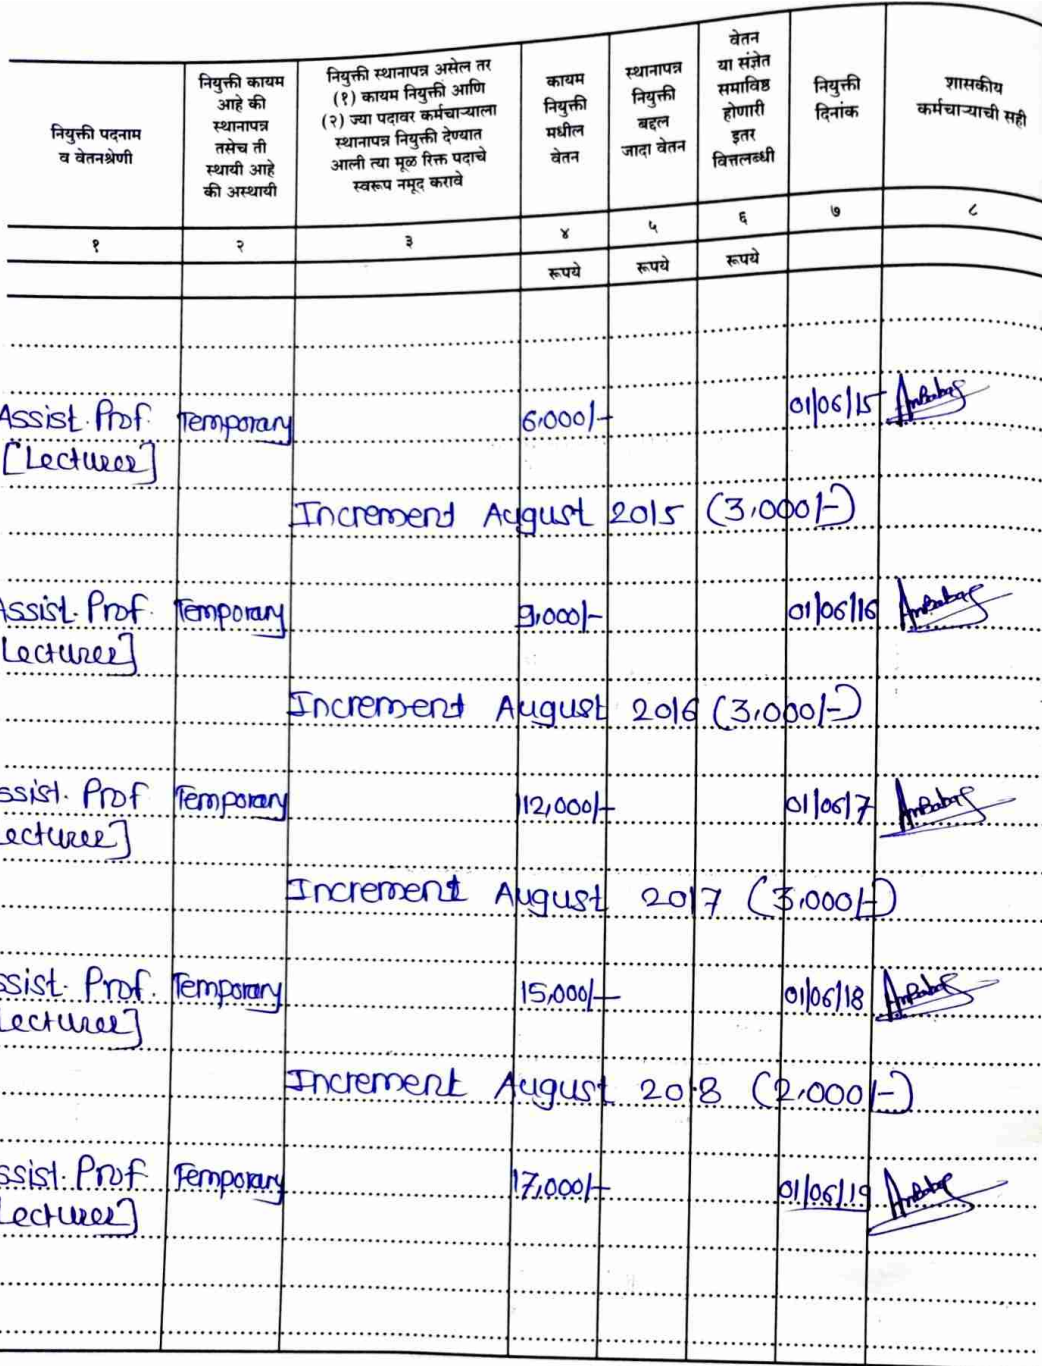 नियुक्ती पदनाम
व वेतनश्रेणी
नियुक्ती कायम
आहे की
स्थानापन्न
तसेच ती
स्थायी आहे
की अस्थायी
नियुक्ती स्थानापन्न असेल तर
(१) कायम नियुक्ती आणि
(२) ज्या पदावर कर्मचाऱ्याला
स्थानापन्न नियुक्ती देण्यात
आली त्या मूळ रिक्त पदाचे
स्वरूप नमूद करावे
कायम
नियुक्ती
मधील
वेतन
स्थानापन्न
नियुक्ती
बद्दल
जादा वेतन
वेतन
या संज्ञेत
समाविष्ठ
होणारी
इतर
वित्तलब्धी
नियुक्ती
दिनांक
शासकीय
कर्मचाऱ्याची सही
१ २ ३ ४ ५ ६ ७ ८
रूपये रूपये रूपये
Assist. Prof. Temporary 6,000/- 01/06/15
[Lecturer]
Increment August 2015 (3,000/-)
Assist. Prof. Temporary 9,000/- 01/06/16
Lecturer]
Increment August 2016 (3,000/-)
ssist. Prof Temporary 12,000/- 01/06/17
ecturer]
Increment August 2017 (3,000/-)
ssist. Prof. Temporary 15,000/- 01/06/18
Lecturer]
Increment August 2018 (2,000/-)
ssist. Prof Temporary 17,000/- 01/06/19
Lecturer]